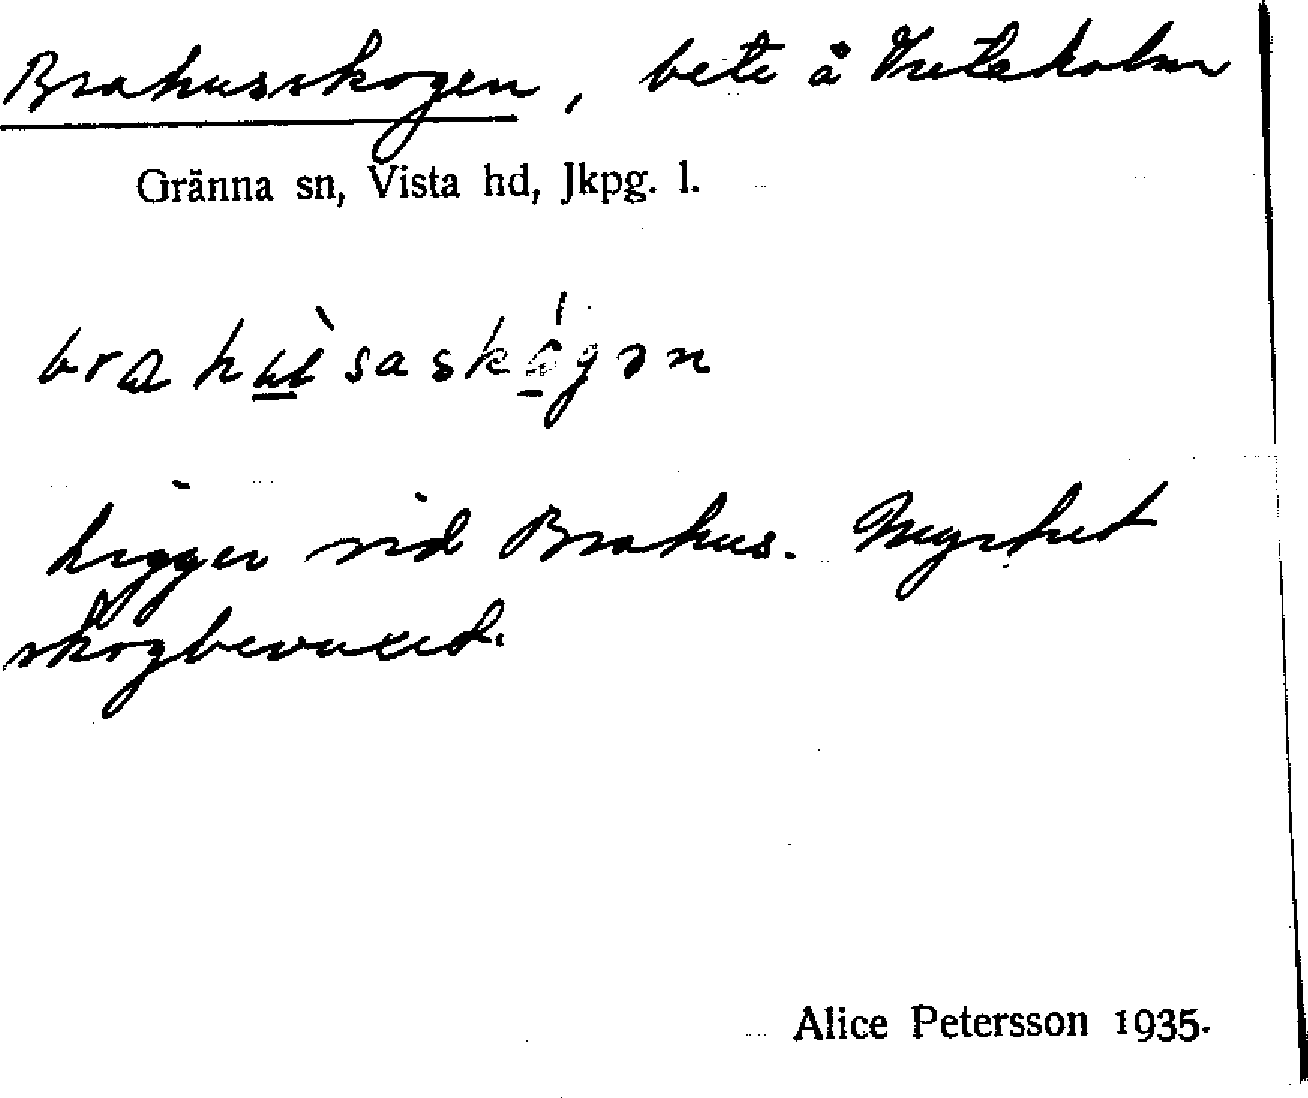 Brahusskogen, bete å Vretaholm
Gränna sn, Vista hd, Jkpg. l.
brahù̲saskǻ̲gən
Ligger vid Brahus. Mycket
skogbevuxed.
Alice Petersson 1935.